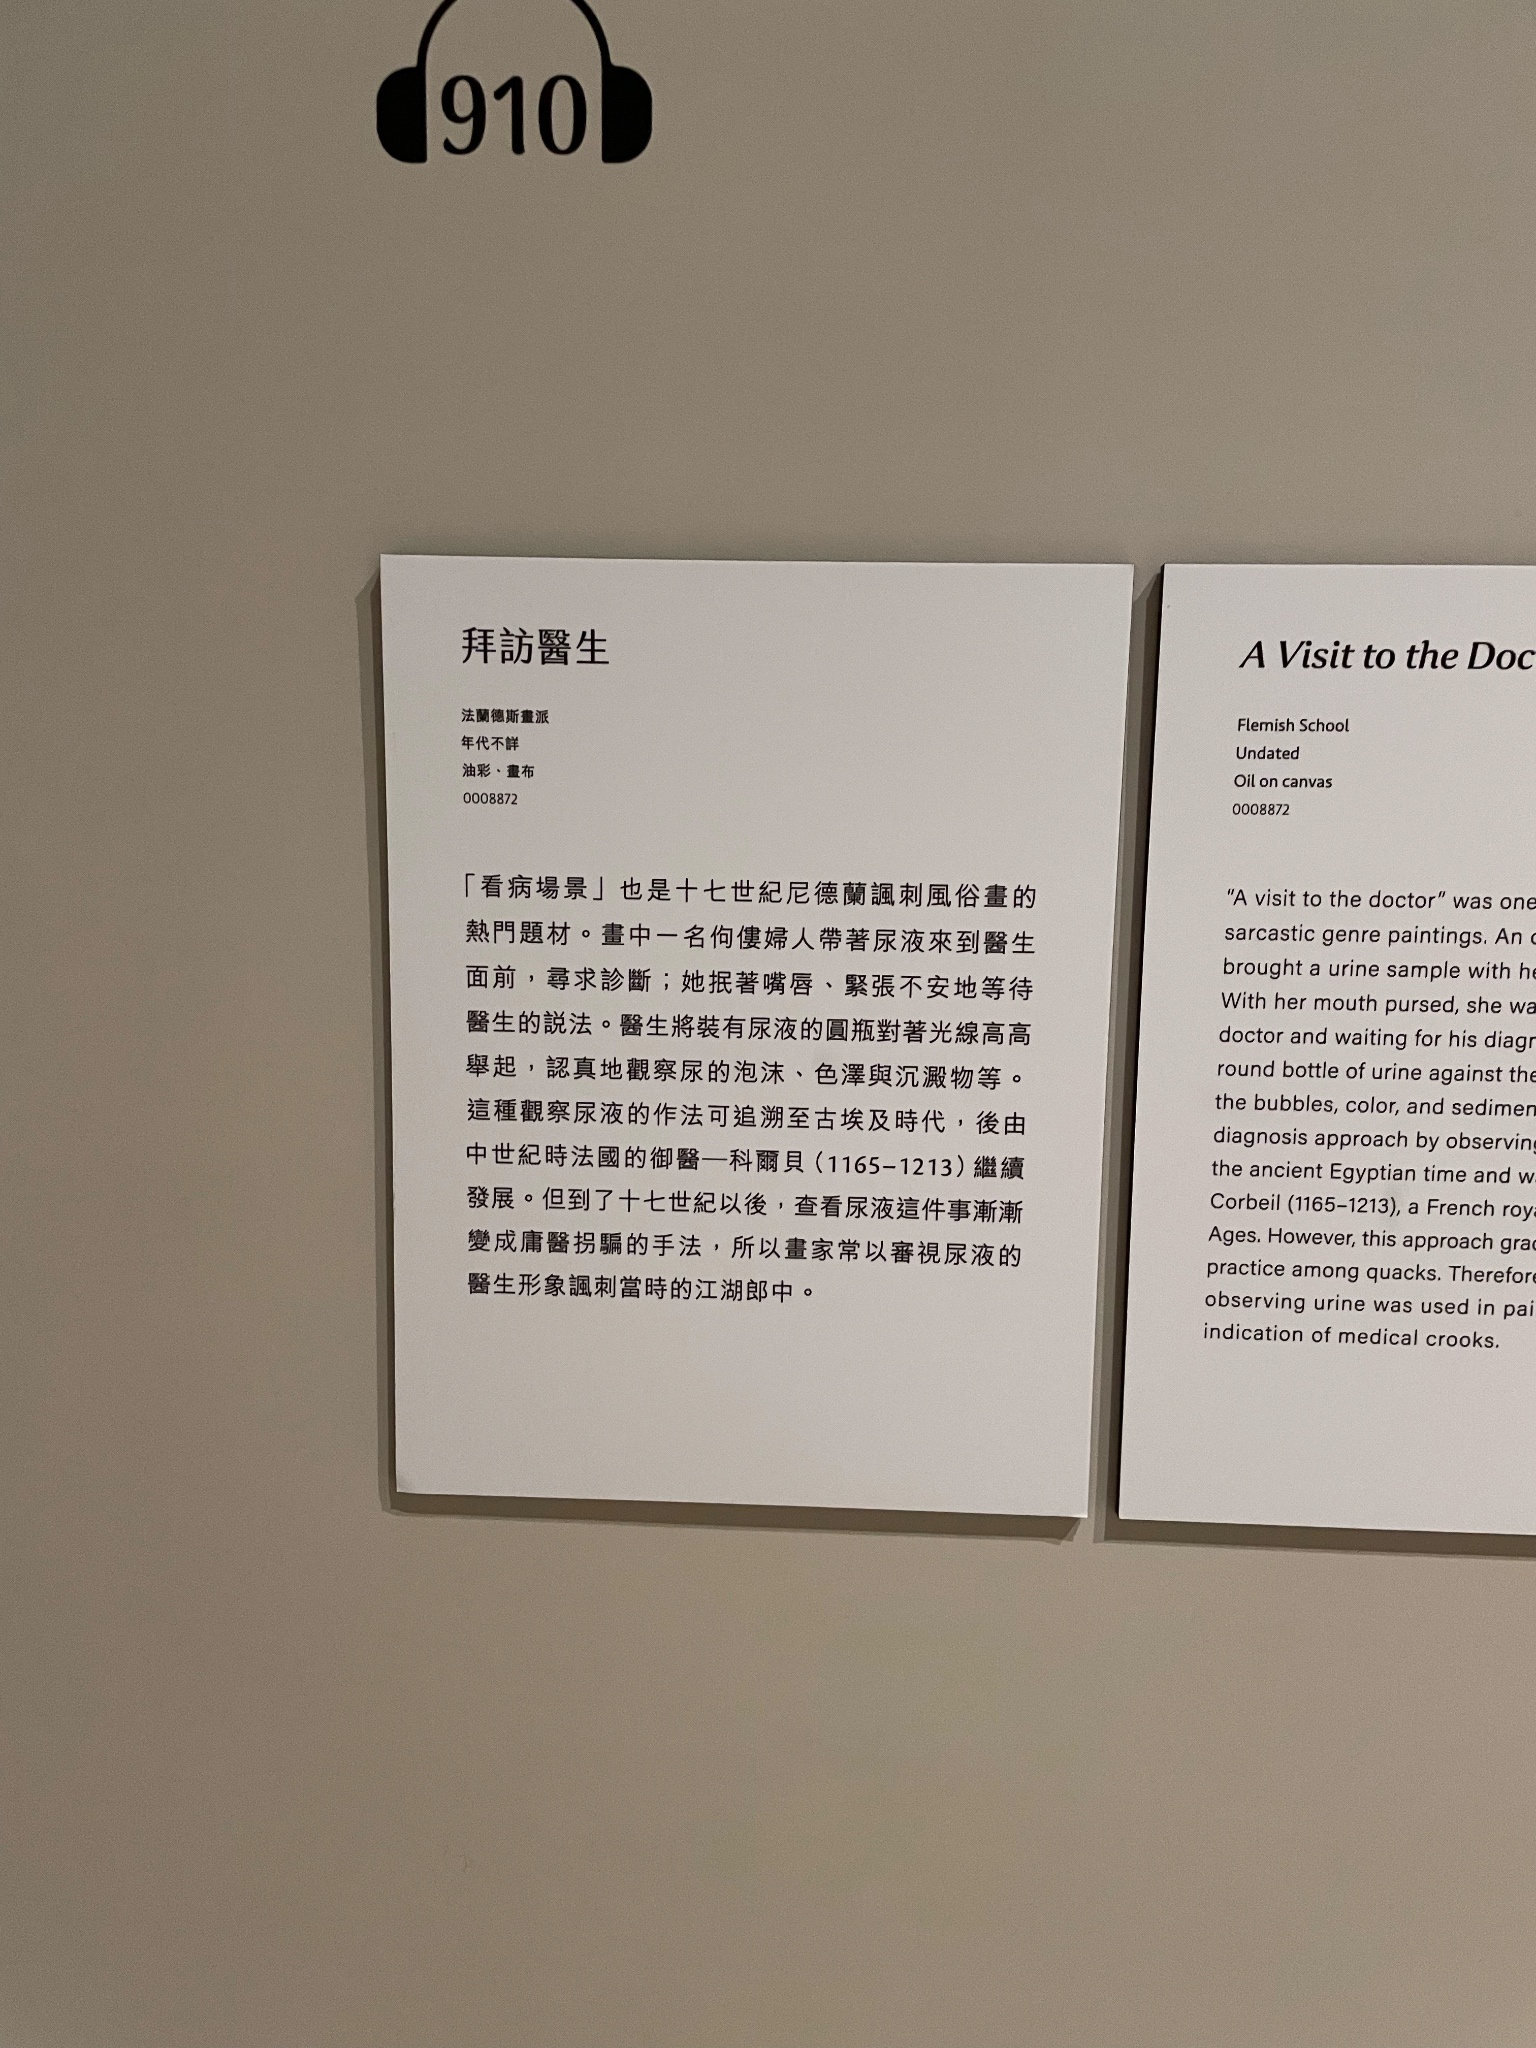 910
拜訪醫生
法蘭德斯畫派
年代不詳
油彩、畫布
0008872
「看病場景」也是十七世紀尼德蘭諷刺風俗畫的
熱門題材。畫中一名佝僂婦人帶著尿液來到醫生
面前，尋求診斷；她抿著嘴唇、緊張不安地等待
醫生的說法。醫生將裝有尿液的圓瓶對著光線高高
舉起，認真地觀察尿的泡沫、色澤與沉澱物等。
這種觀察尿液的作法可追溯至古埃及時代，後由
中世紀時法國的御醫—科爾貝（1165–1213）繼續
發展。但到了十七世紀以後，查看尿液這件事漸漸
變成庸醫拐騙的手法，所以畫家常以審視尿液的
醫生形象諷刺當時的江湖郎中。
A Visit to the Doc
Flemish School
Undated
Oil on canvas
0008872
"A visit to the doctor" was one
sarcastic genre paintings. An
brought a urine sample with he
With her mouth pursed, she wa
doctor and waiting for his diagn
round bottle of urine against the
the bubbles, color, and sedimen
diagnosis approach by observing
the ancient Egyptian time and w
Corbeil (1165–1213), a French roya
Ages. However, this approach grad
practice among quacks. Therefore
observing urine was used in pai
indication of medical crooks.